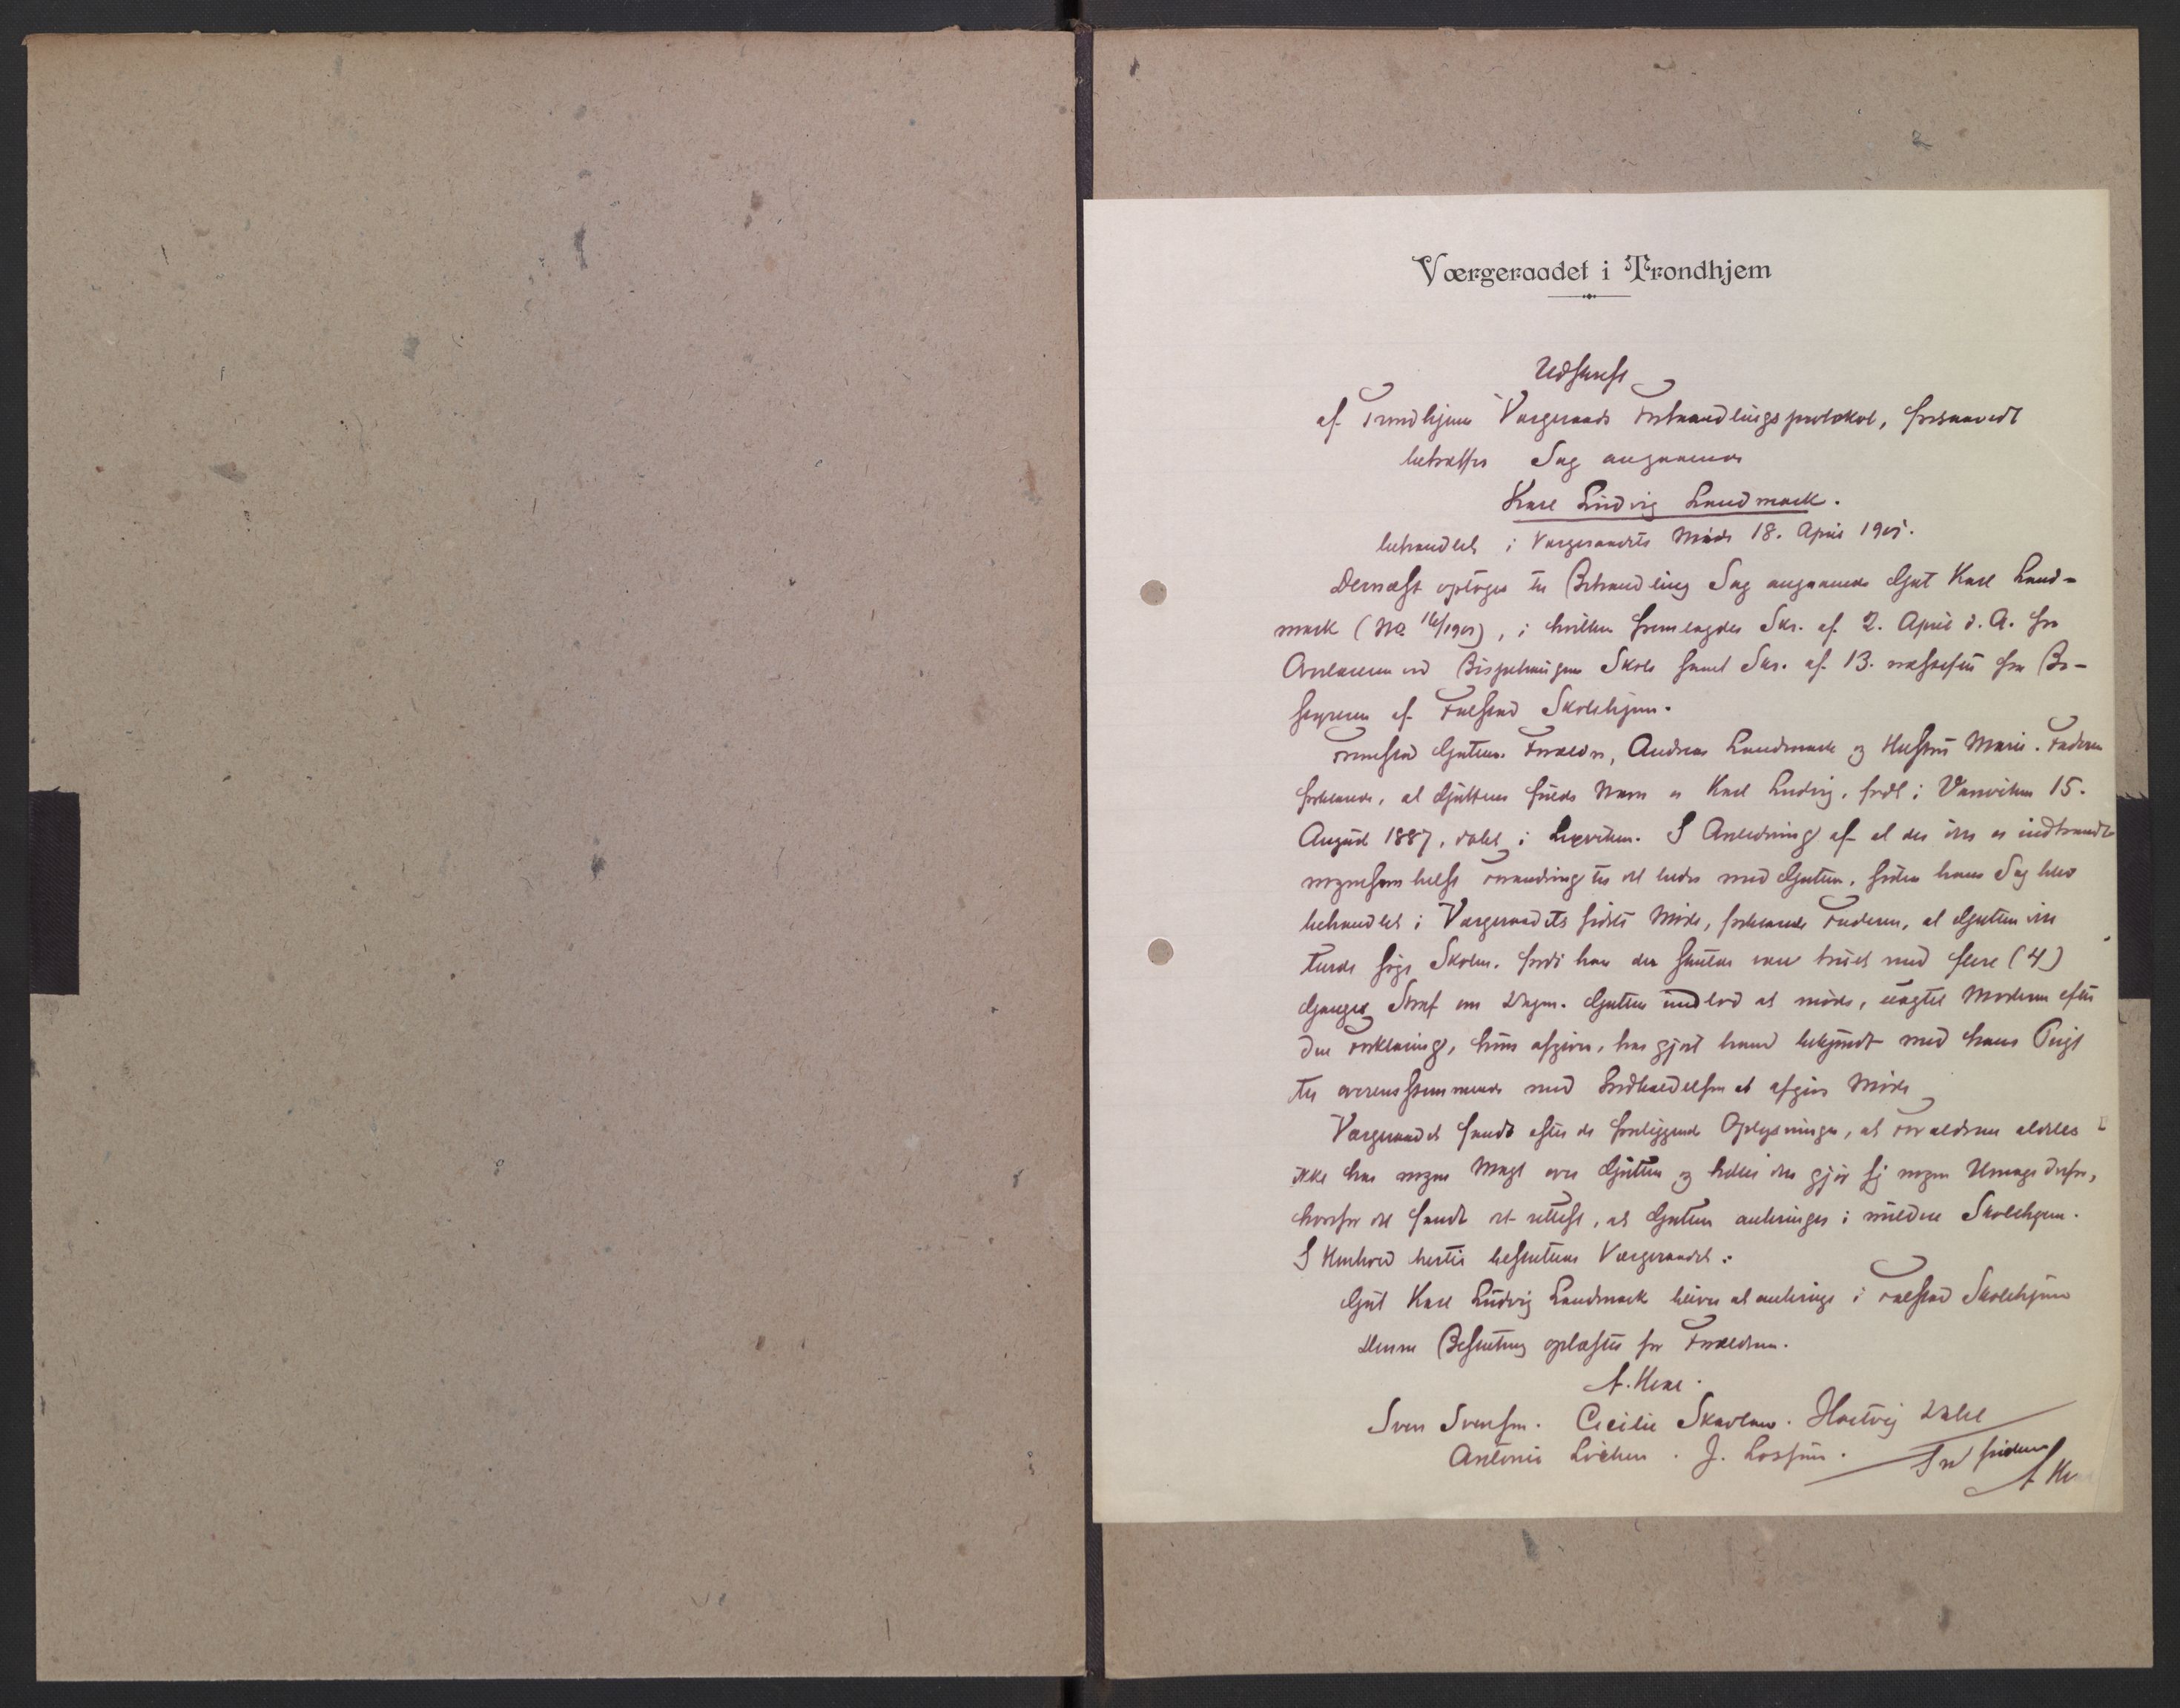 Værgeraadet i Trondhjem
Udskrift
af Trondhjems Værgeraads Forhandlingsprotokol, forsaavidt
betræffer Sag angaaende
Karl Ludvig Landmark.
behandlet i Værgeraadets Møde 18. April 1905.
Dernæst optoges til Behandling Sag angaaende Gut Karl Land-
mark (No 16/1905), i hvilken fremlagdes Skr. af 2. April d. A. fra
Overlæreren ved Bispehaugens Skole samt Skr. af 13. næstefter fra Be-
styreren af Falstad Skolehjem.
Fremstod Guttens Forældre, Andreas Landmark og Hustru Marie. Faderen
forklarede, at Guttens fulde Navn er Karl Ludvig, født i Vanviken 15.
August 1887, døbt i Lexviken. I Anledning af at der ikke er indtraadt
nogensomhelst Forandring til det bedre med Gutten, siden hans Sag blev
behandlet i Værgeraadets sidste Møde, forklarede Faderen, at Gutten ikke
turde søge Skolen, fordi han der skulde være truet med flere (4)
Ganges Straf om Dagen. Gutten undlod at møde, uagtet Moderen efter
den Forklaring, hun afgiver, har gjort ham bekjendt med hans Pligt
til overensstemmende med Indkaldelsen at afgive Møde
Værgeraadet fandt efter de foreliggende Oplysninger, at Forældrene aldeles
ikke har nogen Magt over Gutten og heller ikke gjør sig nogen Umage derfor,
hvorfor det fandt det rettest, at Gutten anbringes i mildere Skolehjem.
I Henhold hertil besluttede Værgeraadet:
Gut Karl Ludvig Landmark bliver at anbringe i Falstad Skolehjem
Denne Beslutning oplæstes for Forældrene.
Sven Svensen. Cecilie Skavlan. Hartvig Dahl
Antonie Løchen. J.